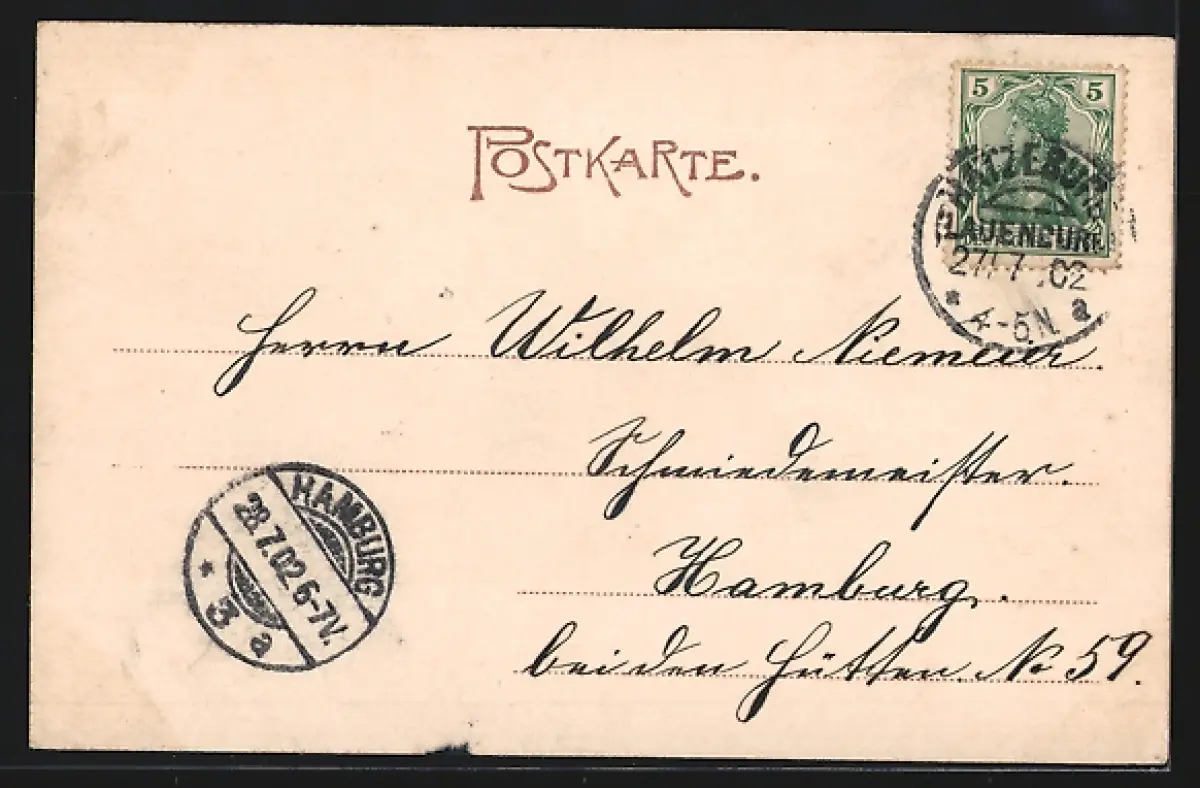 POSTKARTE.
5 5
RATZEBURG
LAUENBURG
27/7.02
* 4-5N. a
Herrn Wilhelm Niemeier.
Schmiedemeister.
Hamburg.
bei den Hütten No 59.
HAMBURG
28.7.02.6-7V.
* 3 a